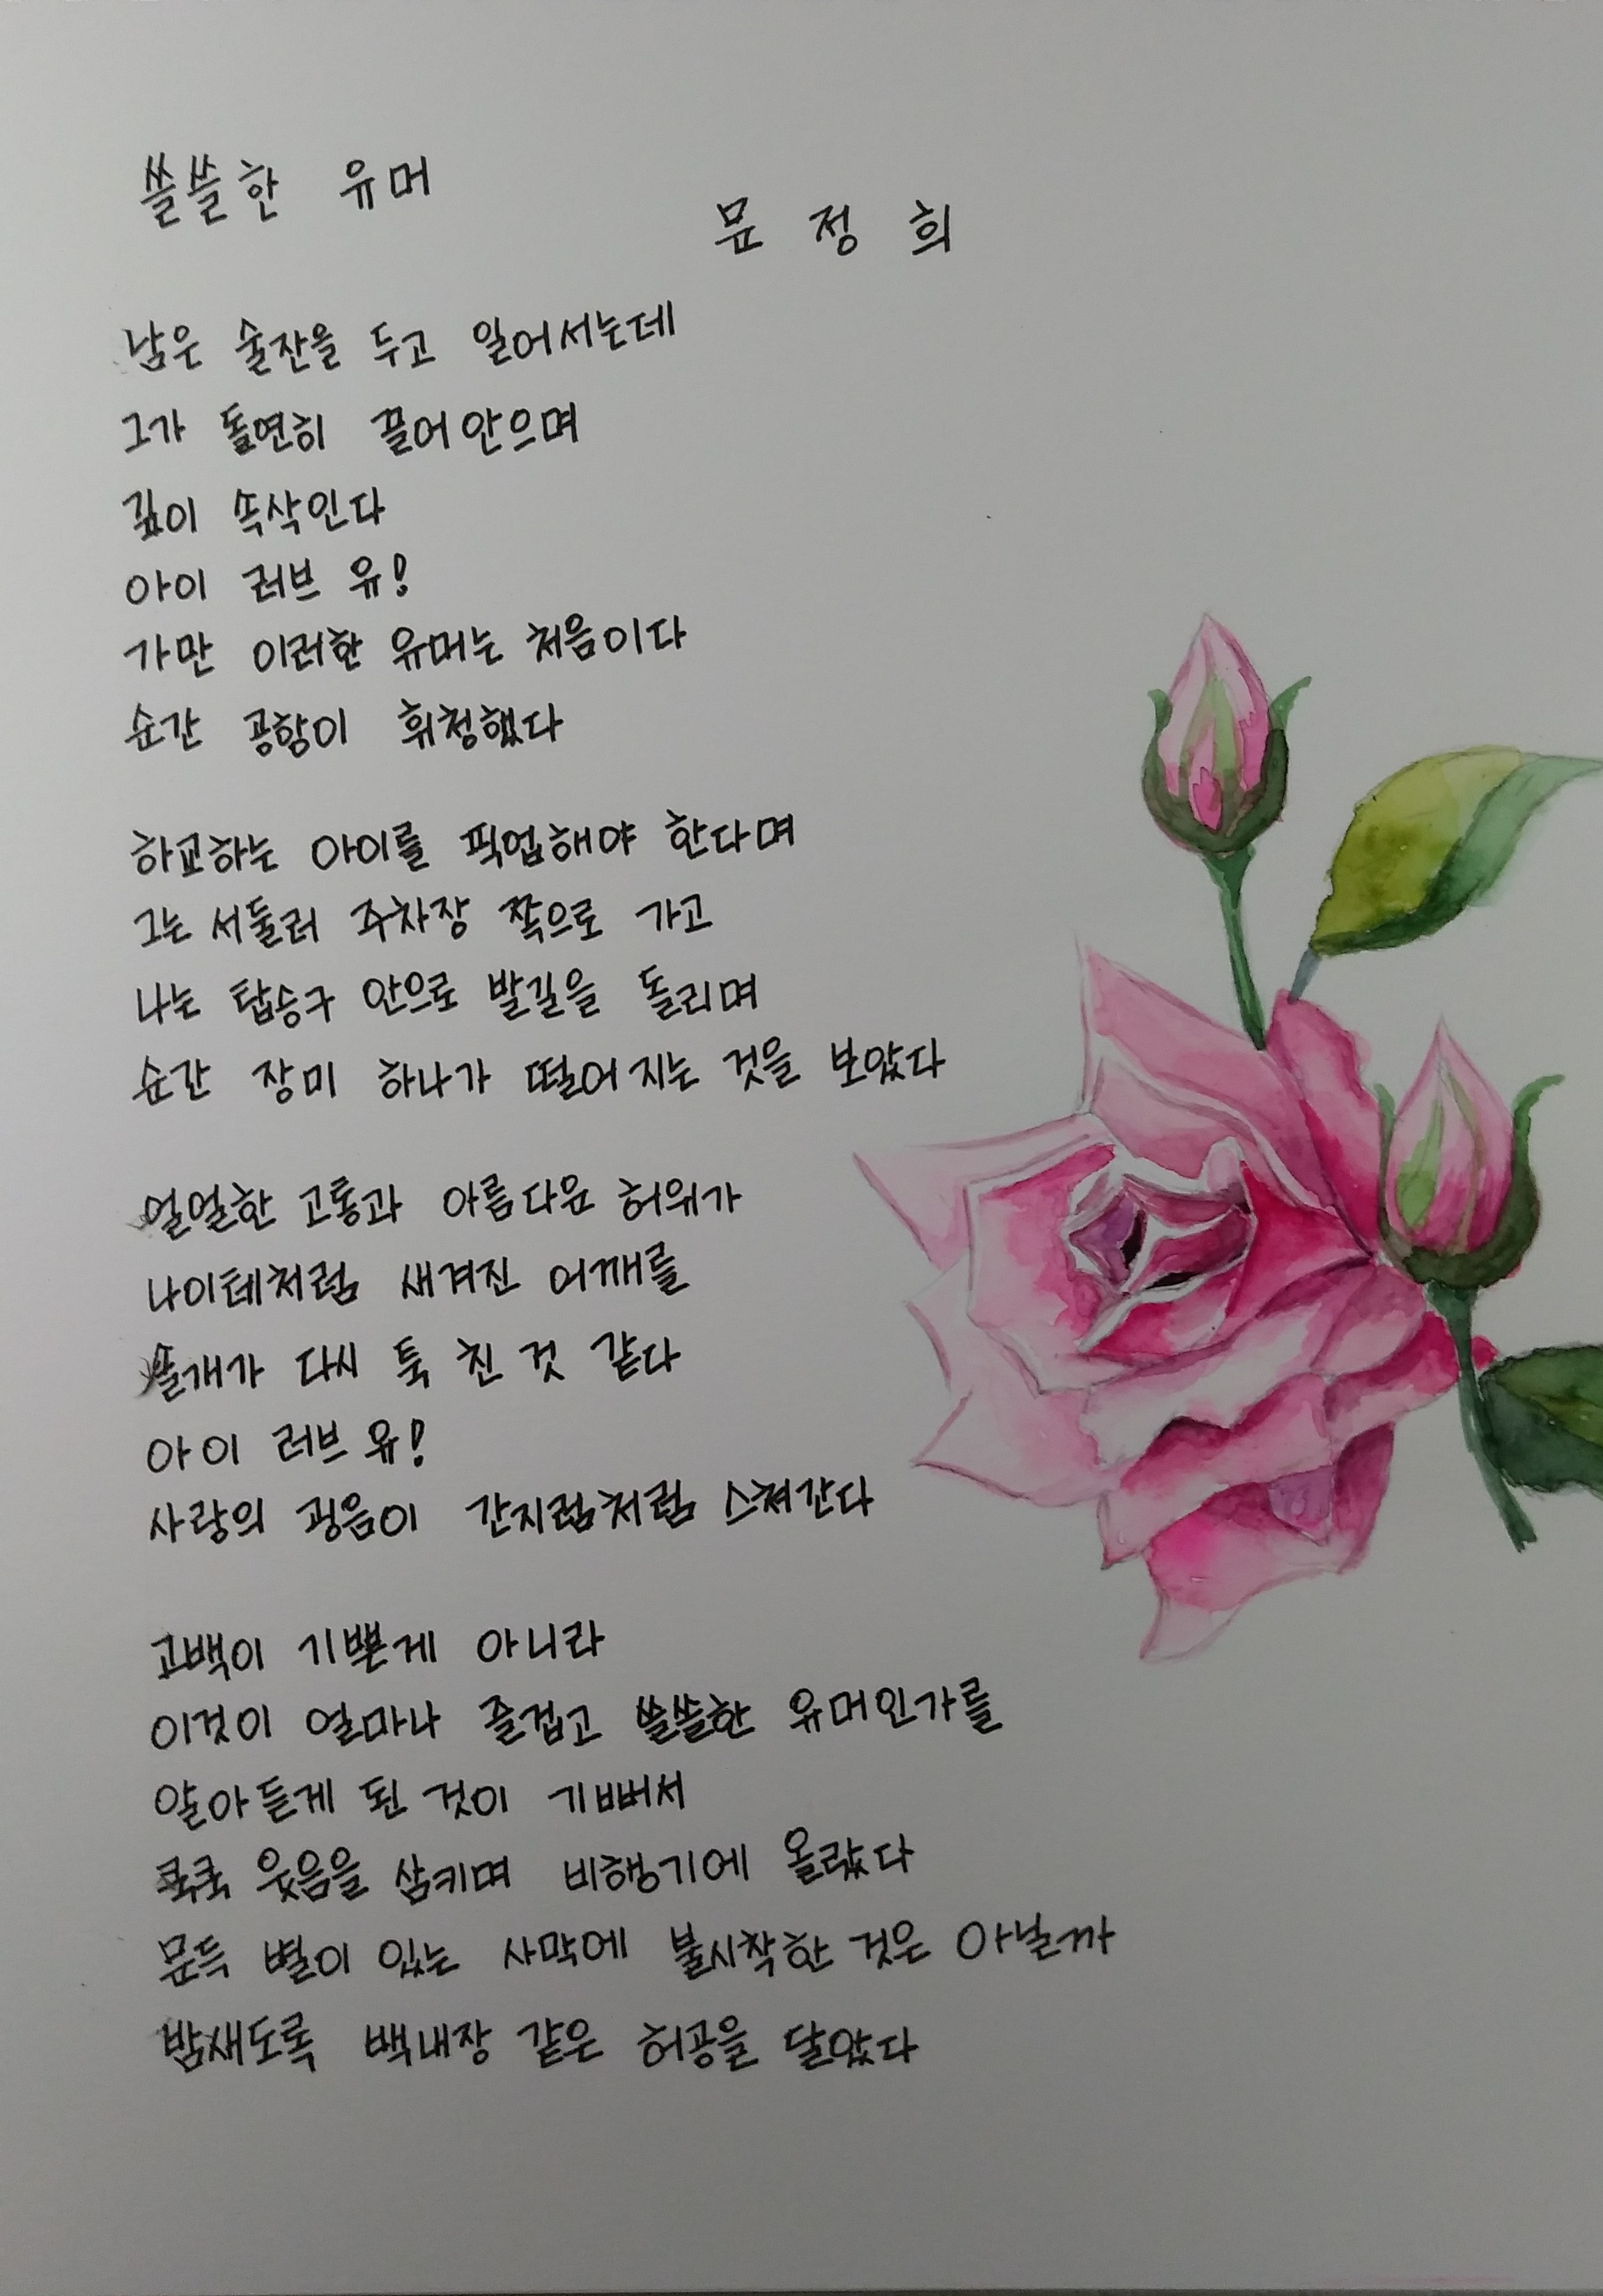 쓸쓸한 유머
문 정 희
남은 술잔을 두고 일어서는데
그가 돌연히 끌어안으며
깊이 속삭인다
아이 러브 유!
가만 이러한 유머는 처음이다
순간 공항이 휘청했다
하교하는 아이를 픽업해야 한다며
그는 서둘러 주차장 쪽으로 가고
나는 탑승구 안으로 발길을 돌리며
순간 장미 하나가 떨어지는 것을 보았다
얼얼한 고통과 아름다운 허위가
나이테처럼 새겨진 어깨를
솔개가 다시 툭 친 것 같다
아이 러브 유!
사랑의 굉음이 간지럼처럼 스쳐간다
고백이 기쁜게 아니라
이것이 얼마나 즐겁고 쓸쓸한 유머인가를
알아듣게 된 것이 기뻐서
쿡쿡 웃음을 삼키며 비행기에 올랐다
문득 별이 있는 사막에 불시착한 것은 아닐까
밤새도록 백내장 같은 허공을 달았다